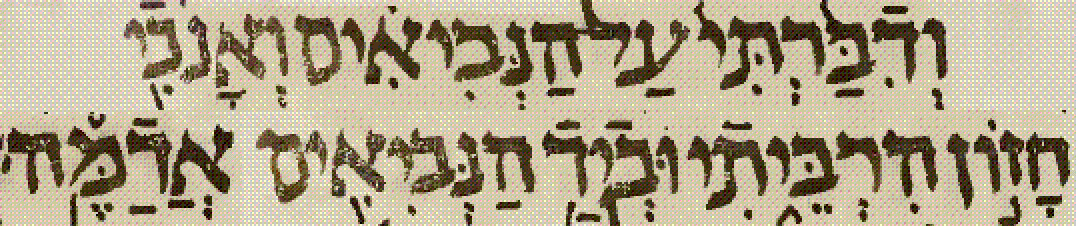 וְדִבַּרְתִּי עַל הַנְּבִיאִים וְאָנֹכִי
חָזוֹן הִרְבֵּיתִי וּבְיַד הַנְּבִיאִים אֲדַמֶּה׃